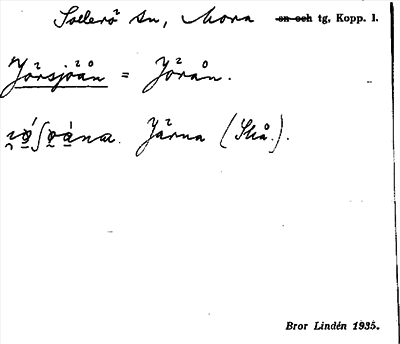 Sollerö sn, Mora sn och tg, Kopp. l.
Jörsjöån = Jörån.
Järna (Skå.).
Bror Lindén 1935.